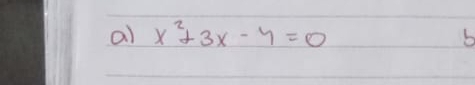 a) x²+3x-4=0 b